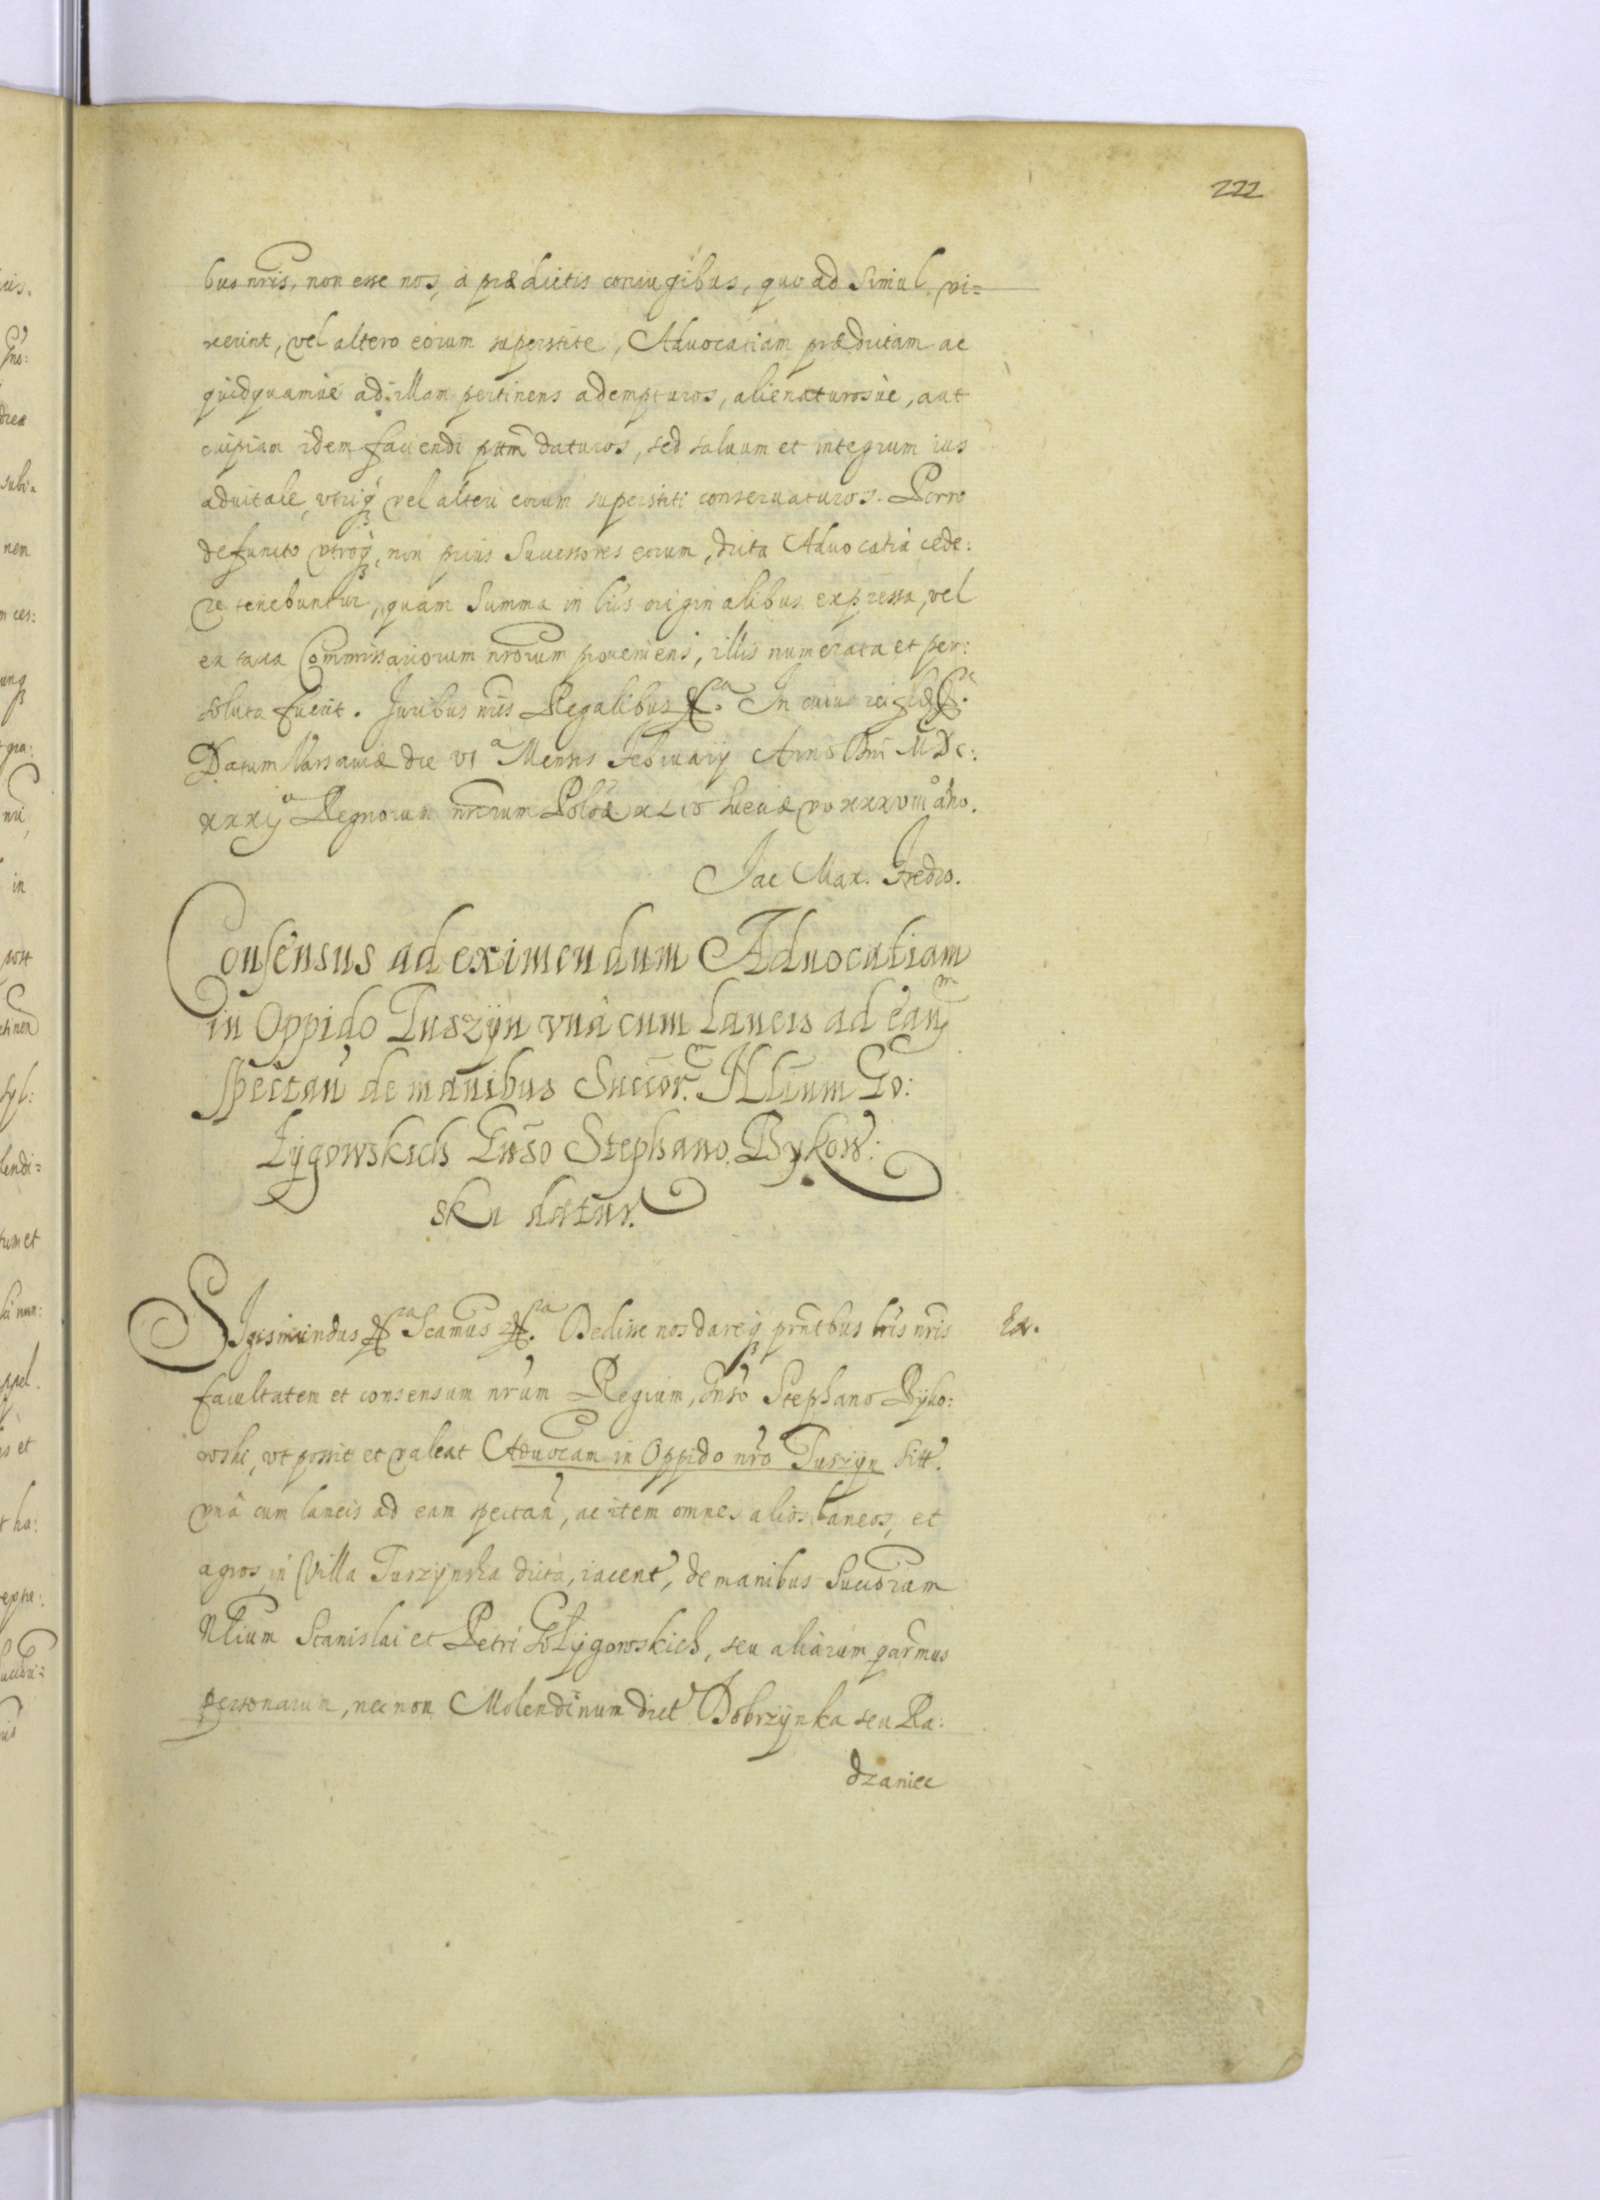 222
bus nris, non esse nos, à prædictis coniugibus, quo ad simul vi=
xerint, vel altero eorum superstite, Aduocatiam prædictam ac
quidquamue ad illam pertinens adempturos, alienaturosue, aut
cuipiam idem faciendi pttm daturos, sed saluum et integrum ius
aduitale, vtriq3 vel alteri eorum superstiti conseruaturos. Porro
defuncto vtroq3, non prius Successores eorum, dicta Aduocatia cede:
re tenebuntur, quam Summa in lris originalibus expressa, vel
ex taxa Commissariorum nrorum proueniens, illis numerata et per:
soluta fuerit. Juribus nris Regalibus In cuius rei
Datum Varsauiæ die VI a Mensis Februarij Anno Dni MDC:
xxxij o Regnorum nrorum Polõæ XLV Sueciæ vo xxxviii o año.
Jac Max. Fredro.
Consensus ad eximendum Aduocatiam
in Oppido Tuszÿn vnà cum laneis ad eam
spectañ de manibus Succor. Nllium Go:
Lÿgowskich Gnso Stephano Bykow:
ski datur.
SIgismundus Seamus Dedisse nos dareq3 pntibus lris nris
facultatem et consensum nrum Regium, Gnso Stephano Byko:
wski, vt possit et valeat Aduocam in Oppido nro Tuszÿn sitt
vnà cum laneis ad eam spectañ, ac item omnes alios laneos, et
agros in Villa Tuszÿnska dicta, iacent, de manibus Succorum
Nllium Stanislai et Petri GoLÿgowskich, seu aliarum quarmuis
personarum, nec non Molendinum dict Dobrzÿnka seu Ra:
dzaniec